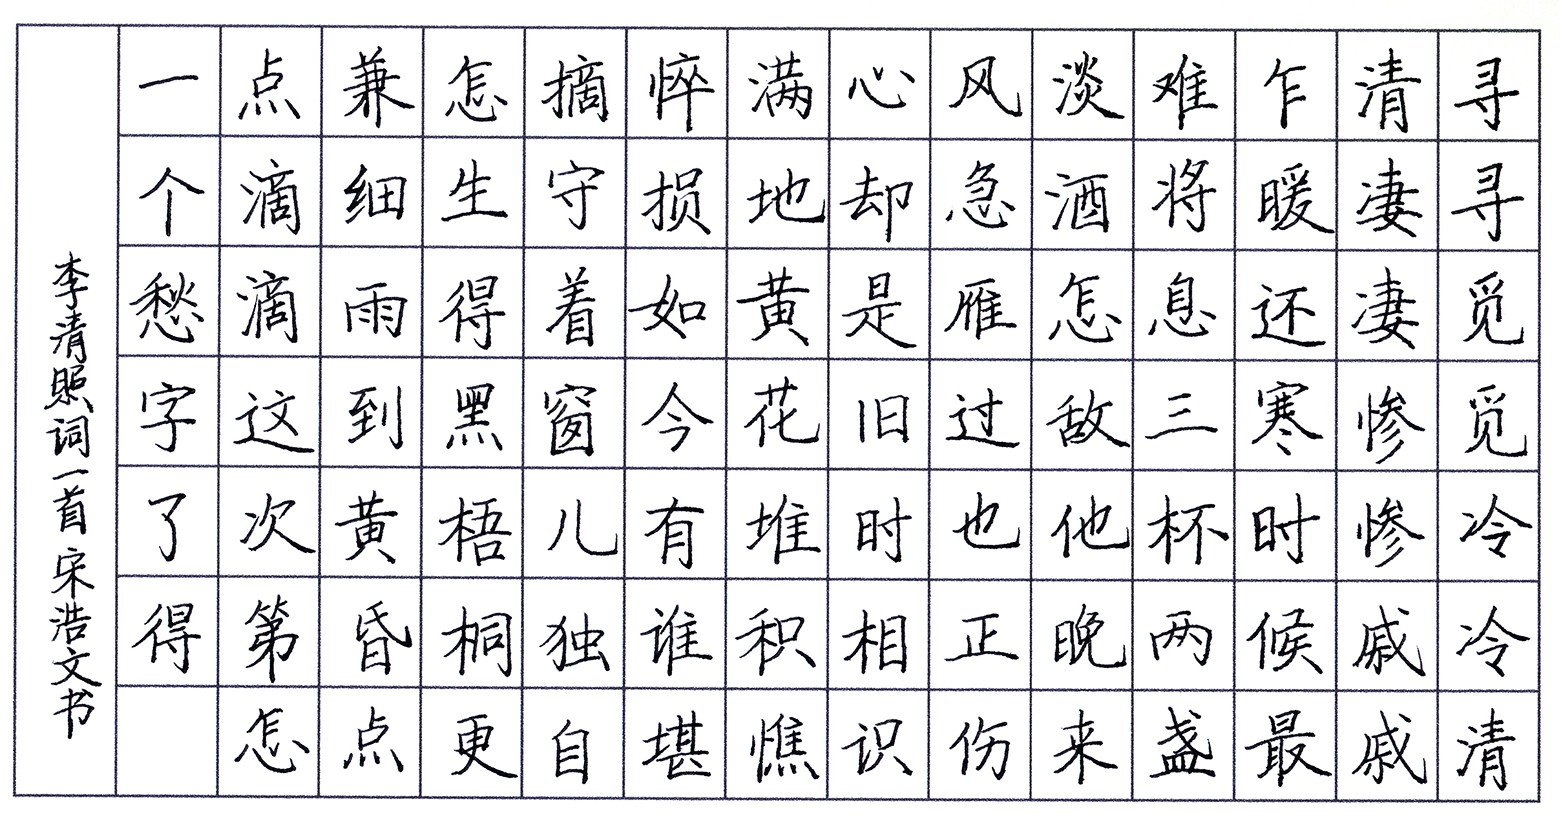 寻寻觅觅冷冷清
清凄凄惨惨戚戚
乍暖还寒时候最
难将息三杯两盏
淡酒怎敌他晚来
风急雁过也正伤
心却是旧时相识
满地黄花堆积憔
悴损如今有谁堪
摘守着窗儿独自
怎生得黑梧桐更
兼细雨到黄昏点
点滴滴这次第怎
一个愁字了得
李清照词一首宋浩文书